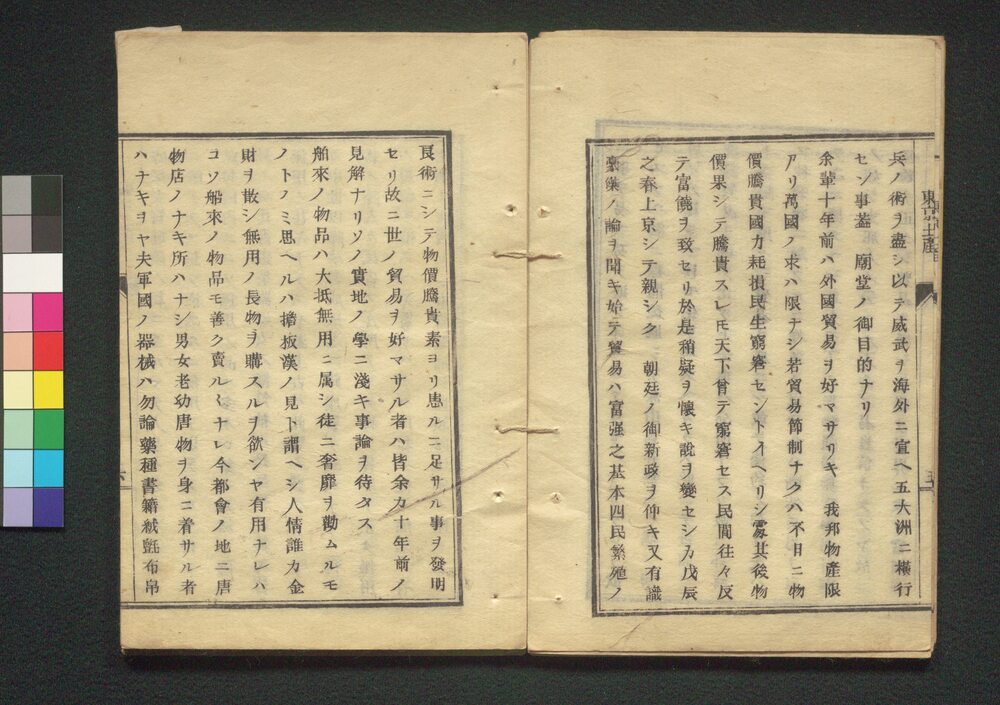 兵ノ術ヲ盡シ以テ威武ヲ海外ニ宣ヘ五大洲ニ横行
セン事蓋　廟堂ノ御目的ナリ
余輩十年前ハ外國貿易ヲ好マサリキ　我邦物產限
アリ萬國ノ求ハ限ナシ若貿易節制ナクハ不日ニ物
價騰貴國力耗損民生窮窘セントイヘリシ其後物
價果シテ騰貴スレモ天下曾テ窮窘セス民間往々反
テ富饒ヲ致セリ於是稍疑ヲ懷キ說ヲ變セシカ戊辰
之春上京シテ親シク　朝廷ノ御新政ヲ仰キ又有識
ノ論ヲ聞キ始テ貿易ハ富强之基本四民繁殖ノ
良術ニシテ物價騰貴素ヨリ患ルニ足サル事ヲ發明
セリ故ニ世ノ貿易ヲ好マサル者ハ皆余カ十年前ノ
見解ナリソノ實地ノ學ニ淺キ事論ヲ待タス
舶來ノ物品ハ大抵無用ニ属シ徒ニ奢靡ヲ勸ムルモ
ノトノミ思ヘルハ擔板漢ノ見ト謂ヘシ人情誰カ金
財ヲ散シ無用ノ長物ヲ購スルヲ欲ンヤ有用ナレハ
コソ船來ノ物品モ善ク賣ルヽナレ今都會ノ地ニ唐
物店ノナキ所ハナシ男女老幼唐物ヲ身ニ着サル者
ハナキヲヤ夫軍國ノ器械ハ勿論藥種書籍絨氈布帛
東京土産
六